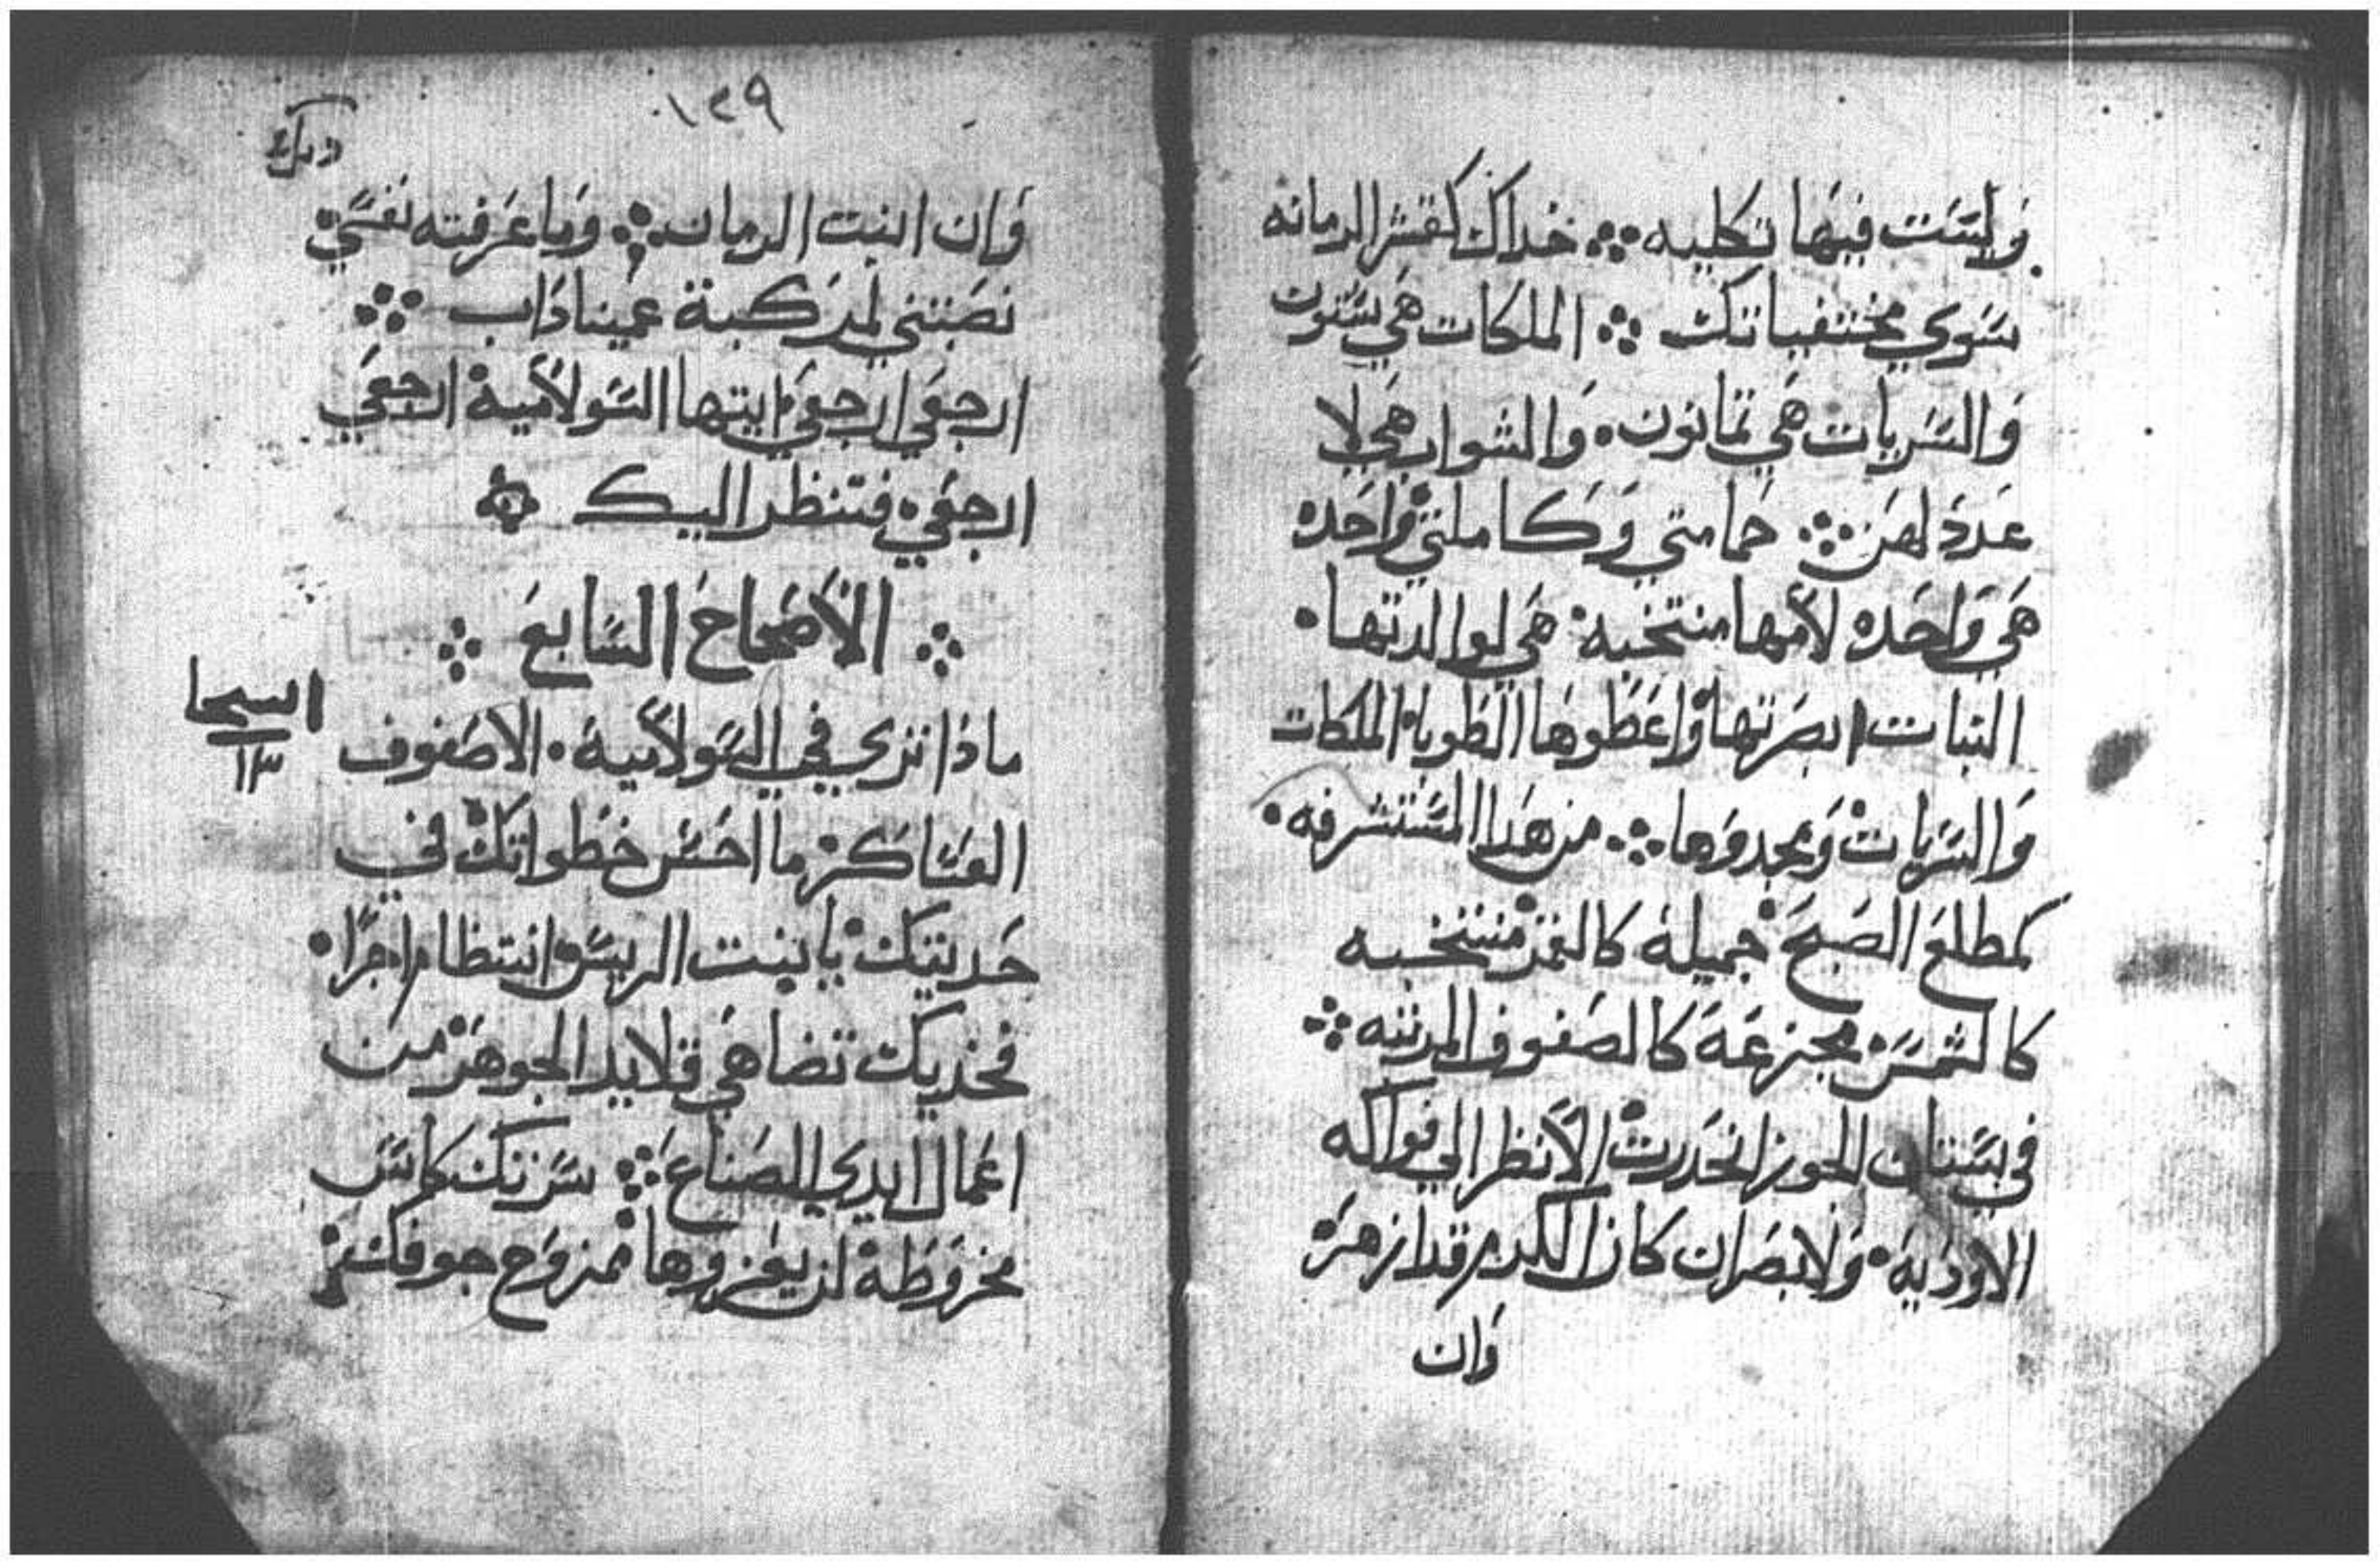 وليسَت فيهَا تكليه ❖ خداك كقشر الرمانه
سَوي مختفياتك ❖ الملكات هَي ستون
وَالسَريات هَي تمانون. وَالشواب هَي لا
عَدد لهَن ❖ حَمامتي وَكاملتي وَاحَده
هَي وَاحَده لأمها منتخبه. هَي لوالدتها.
النبات ابصَرتها وَاعَطوهَا الطوبا. الملكات
وَالسَريات وَمجدوَها ❖ من هَدا المسَتشرفه.
كمطلعَ الصَبحَ جميله كالقمر منتخبه
كالشمسَ مجزعَة كالصَفوف المرتبه ❖
في بسَتان الجوز انحَدرت لأنظر الي فواكه
الاودَية. وَلابصَر ان كان الكرم قد ازهَر
وَان
١٢٩
وَان انبت الرمان ❖ وَما عَرفته نفسَي
نصَبتني لمرَكبة عَميناداب ❖
ارجعَي ارجعَي ايتها السَولامية ارجعَي
ارجعَي. فتنظر اليك
❖ الأصَحاحَ السَابعَ ❖
ماذا تري في السَولامية. الا صَفوف
العسَاكر. ما احَسَن خطواتك في
حَديتيك يا بنت الريسَ. انتظام خرَا.
فخديك تضاهَي قلايد الجوهَر من
اعَمال ايدي الصَناعَ ❖ سَرتك كاسَ
مخروَطة لن يعَزوها ممزوَج جوفك